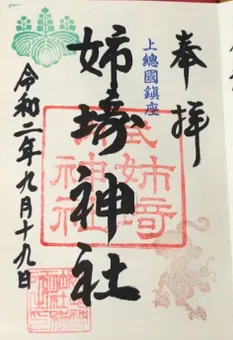 奉拝
上總國鎮座
姉埼神社
令和二年九月十九日